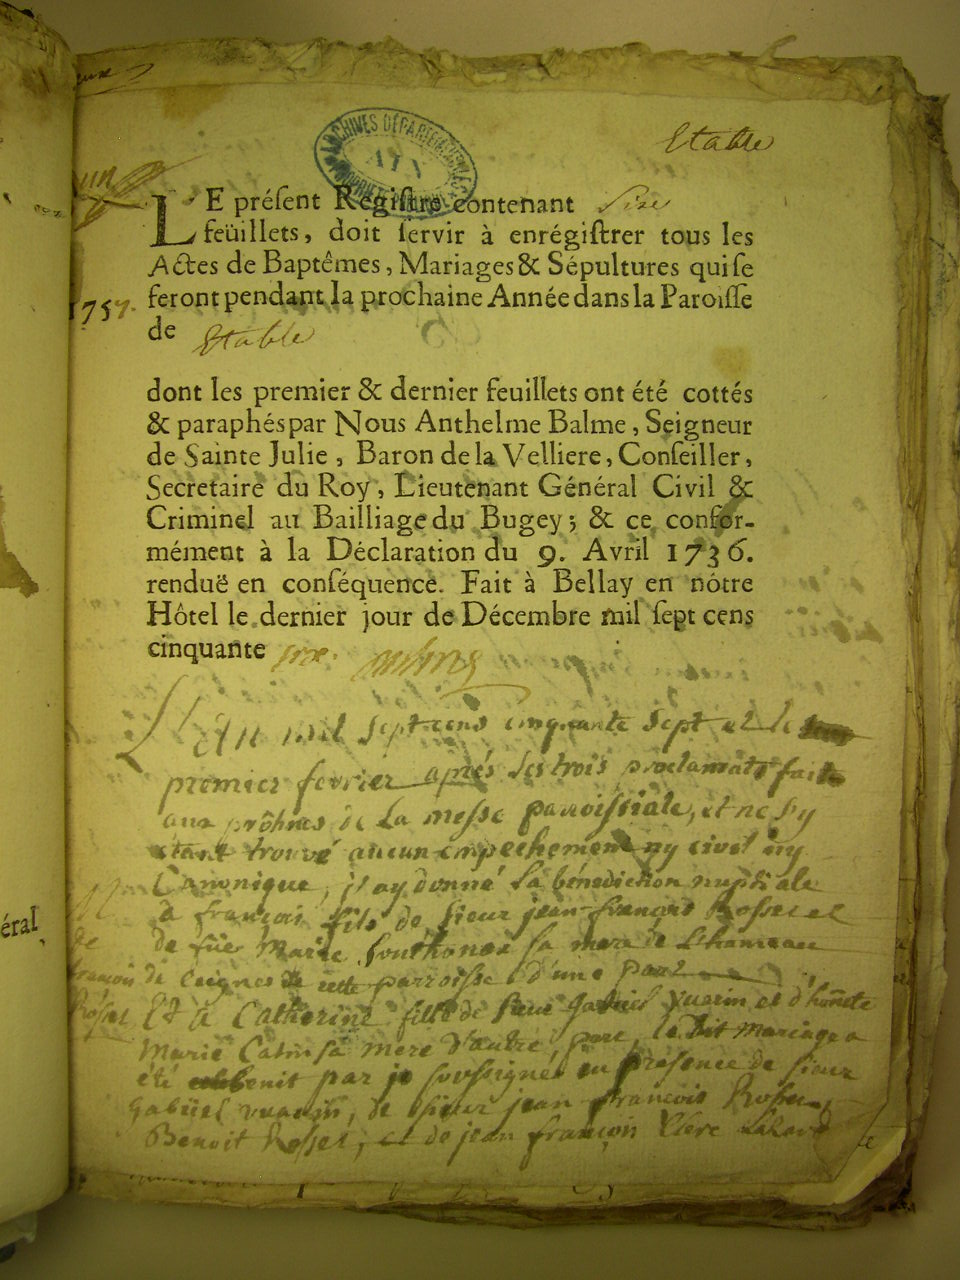 Etable
ARCHIVES DÉPARTEMENTALES
AIN
un
LE préſent Regiſtre contenant Sixe
feüillets, doit ſervir à enrégiſtrer tous les
Actes de Baptêmes, Mariages & Sépultures qui ſe
feront pendant la prochaine Année dans la Paroiſſe
1757.
de Etable
dont les premier & dernier feuillets ont été cottés
& paraphés par Nous Anthelme Balme, Seigneur
de Sainte Julie, Baron de la Velliere, Conſeiller,
Secretaire du Roy, Lieutenant Général Civil &
Criminel au Bailliage du Bugey; & ce confor-
mément à la Déclaration du 9. Avril 1736.
renduë en conſéquence. Fait à Bellay en nôtre
Hôtel le dernier jour de Décembre mil ſept cens
cinquante
L'an mil sept cens cinquante sept et le
premier fevrier après les trois proclamats faits
aux prônes de La messe paroissiale, et ne s'y
étant trouvé aucun empechement ny civil ny
Canonique, j'ay donné la bénédiction nuptiale
à françois fils de sieur jean françois Rosset et
de füe Marie Southonax sa mere de Lhameau
de Ceignes de cette parroisse d'une part
françois
Rosset
Et à Catherine fille de sieur Gabriel yvarin et d'hônete
Marie Cabin sa mere d'autre part, le dit Mariage a
été benit par je soussigné en presence de sieur
Gabriel yvarin, de sieur jean françois Rosset,
Benoit Rosset, et de jean françois
éral